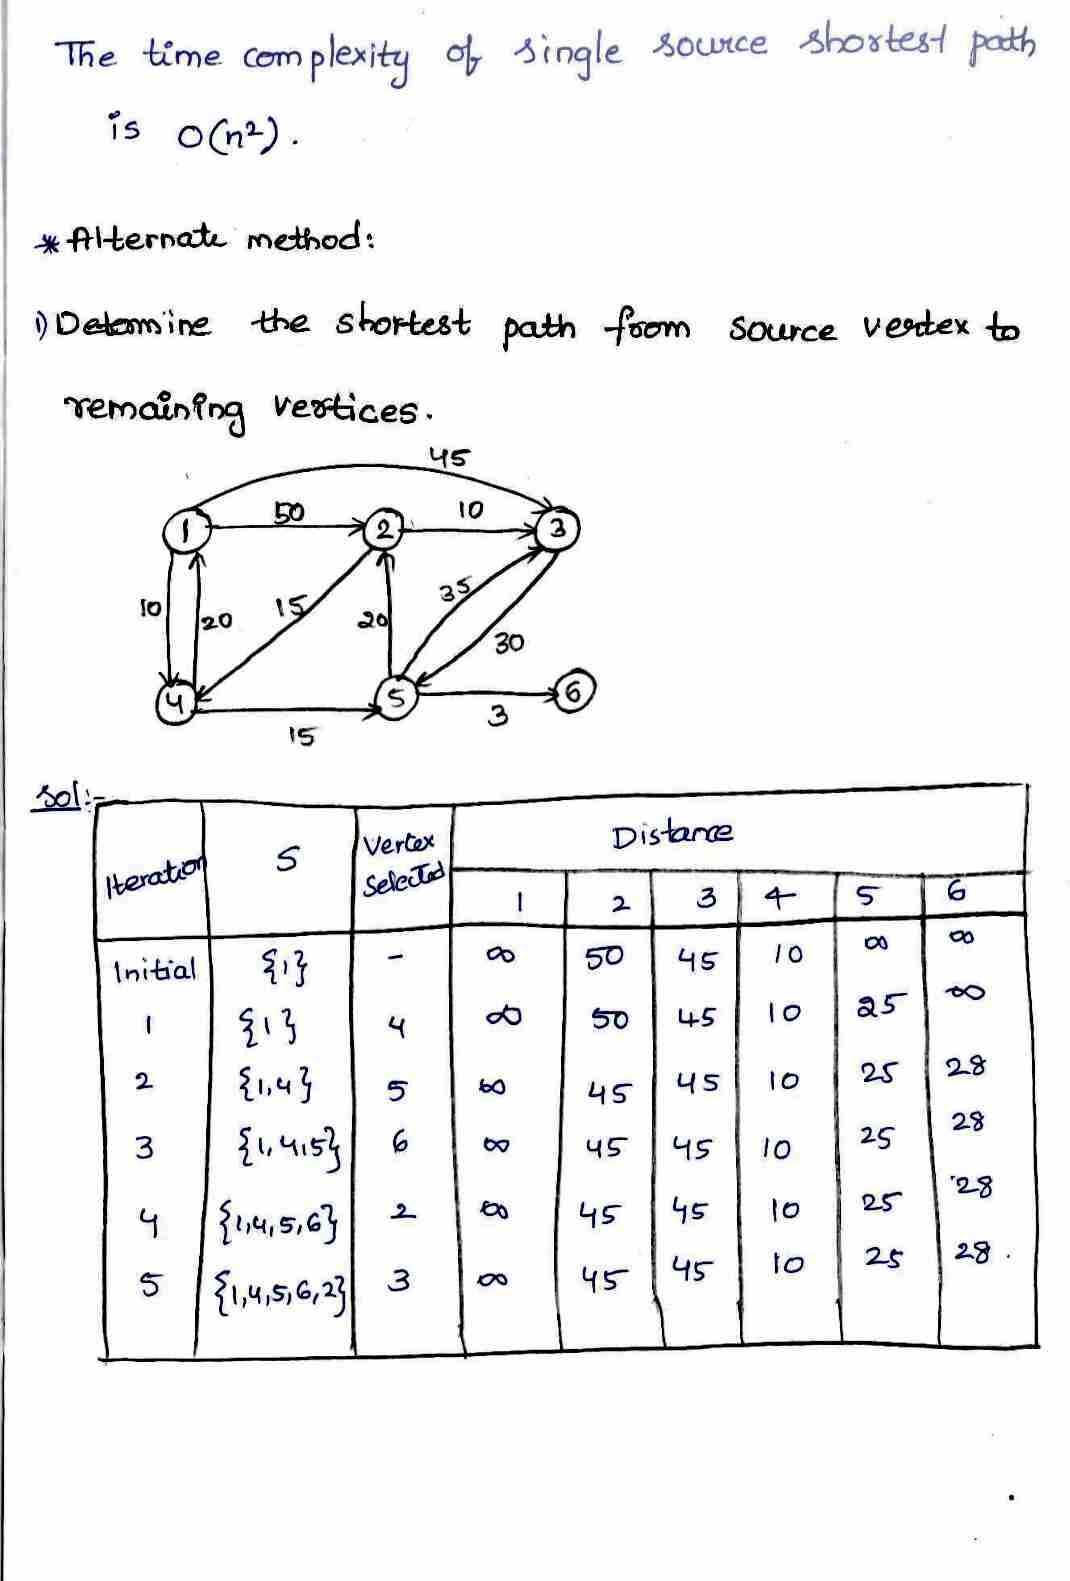 The time complexity of single source shortest path
is O(n²).
* Alternate method:
1) Determine the shortest path from source vertex to
remaining vertices.
45
1 50 2 10 3
10 20 15 20 35 30
4 15 5 3 6
Sol:-
Iteration S Vertex Selected Distance
1 2 3 4 5 6
Initial {1} - ∞ 50 45 10 ∞ ∞
1 {1} 4 ∞ 50 45 10 25 ∞
2 {1,4} 5 ∞ 45 45 10 25 28
3 {1,4,5} 6 ∞ 45 45 10 25 28
4 {1,4,5,6} 2 ∞ 45 45 10 25 28
5 {1,4,5,6,2} 3 ∞ 45 45 10 25 28.